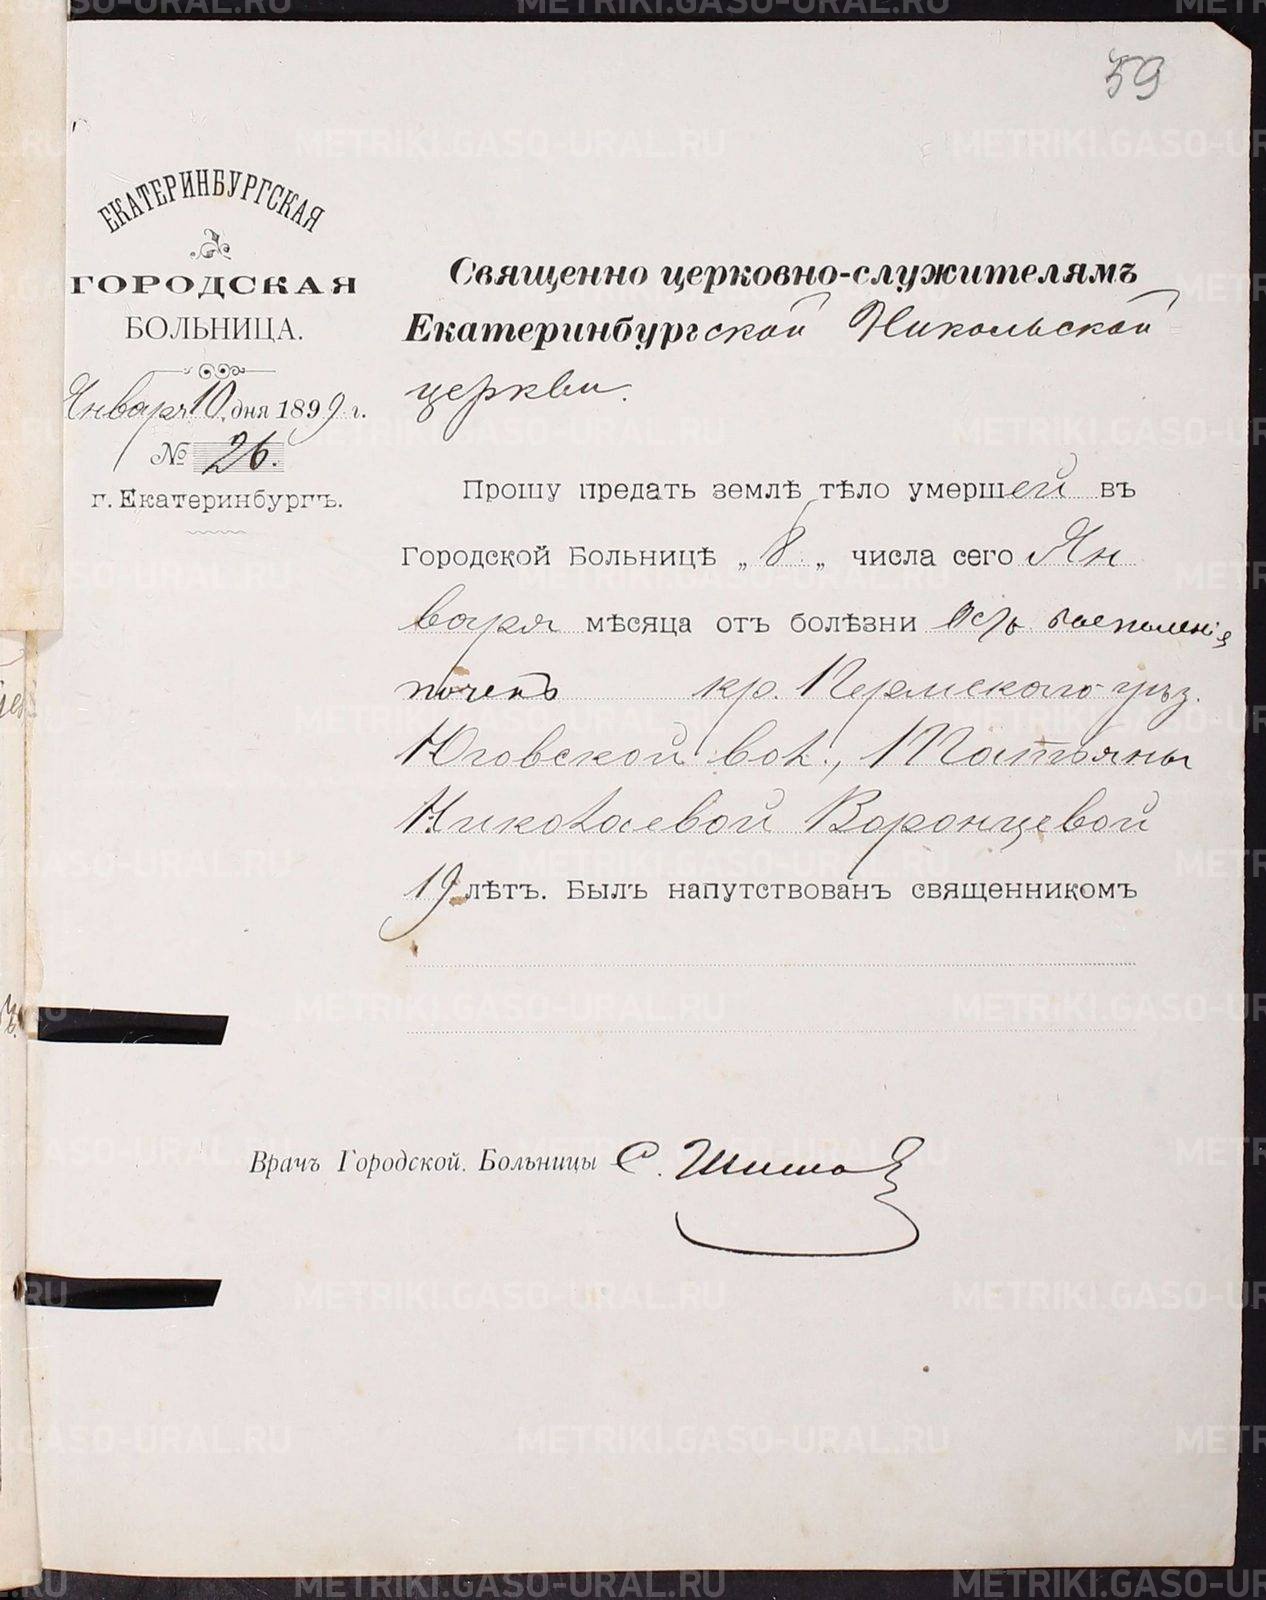 59
ЕКАТЕРИНБУРГСКАЯ
ГОРОДСКАЯ
БОЛЬНИЦА.
Января 10 дня 1899 г.
№ 26.
г. Екатеринбургъ.
Священно церковно-служителямъ
Екатеринбургской Никольской
церкви.
Прошу предать землѣ тѣло умершей въ
Городской Больницѣ „ 8 „ числа сего Ян
варя мѣсяца отъ болѣзни воспаленія
почекъ кр. Пермскаго уѣз.
Юговской вол., Татьяны
Николаевой Воронцевой
19 лѣтъ. Былъ напутствованъ священникомъ
Врачъ Городской Больницы С.
METRIKI.GASO-URAL.RU